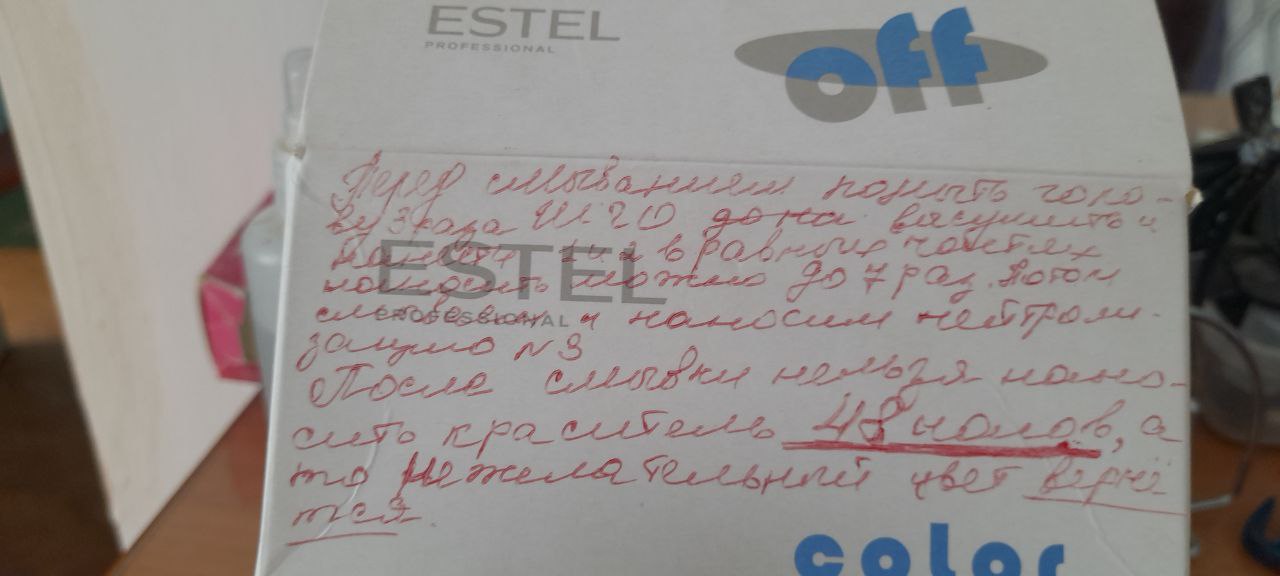 ESTEL
PROFESSIONAL
off
Перед смыванием помыть голо-
ву 3 раза ШГО высушить и
нанести 1 и 2 в равных частях
наносить можно до 7 раз. Потом
смываем и наносим нейтрали-
зацию N 3
После смывки нельзя нано-
сить краситель 48 часов, а
то нежелательный цвет вернё
тся.
ESTEL
PROFESSIONAL
color